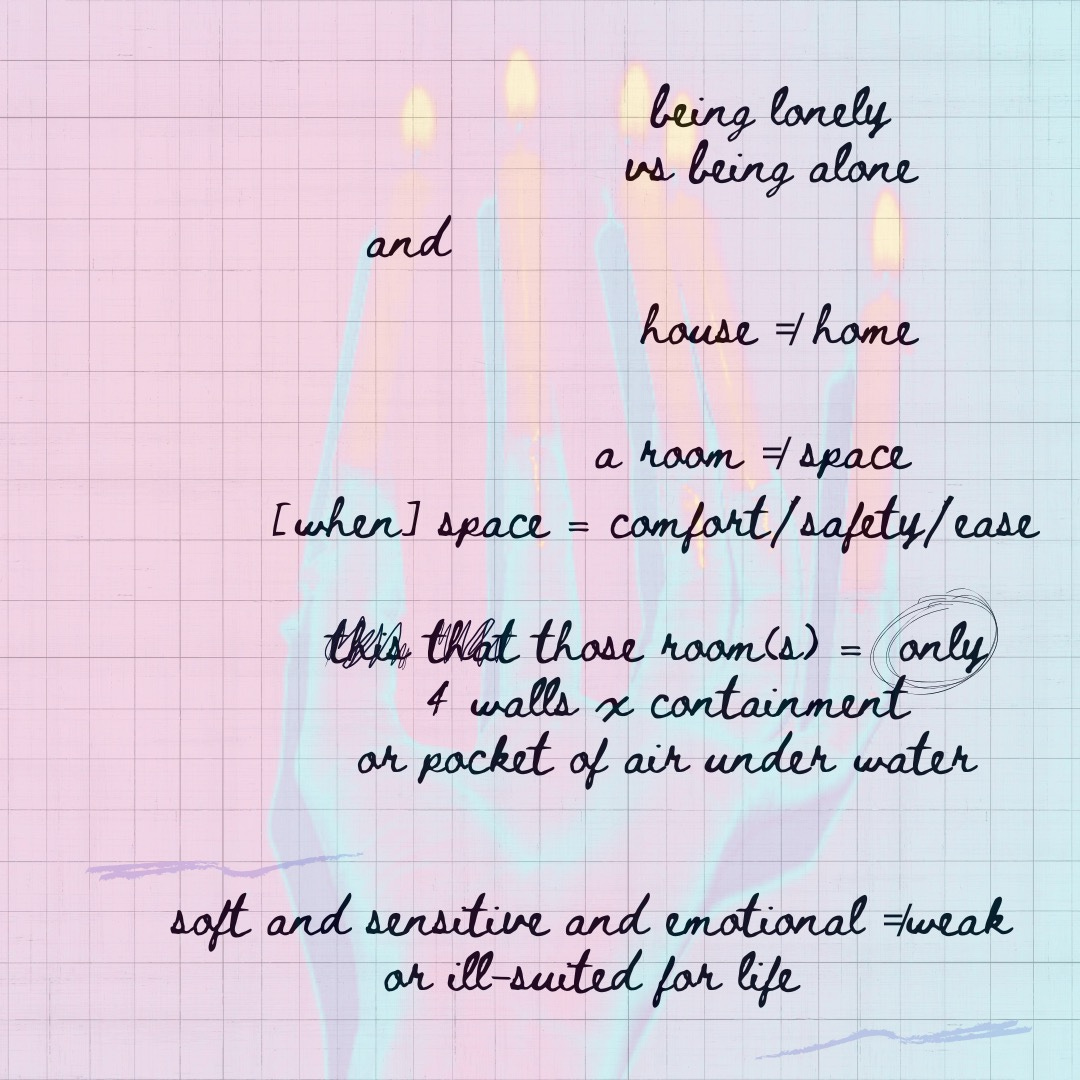 being lonely
vs being alone
and
house ≠ home
a room ≠ space
[when] space = comfort/safety/ease
this that those room(s) = only
4 walls x containment
or pocket of air under water
soft and sensitive and emotional ≠ weak
or ill-suited for life